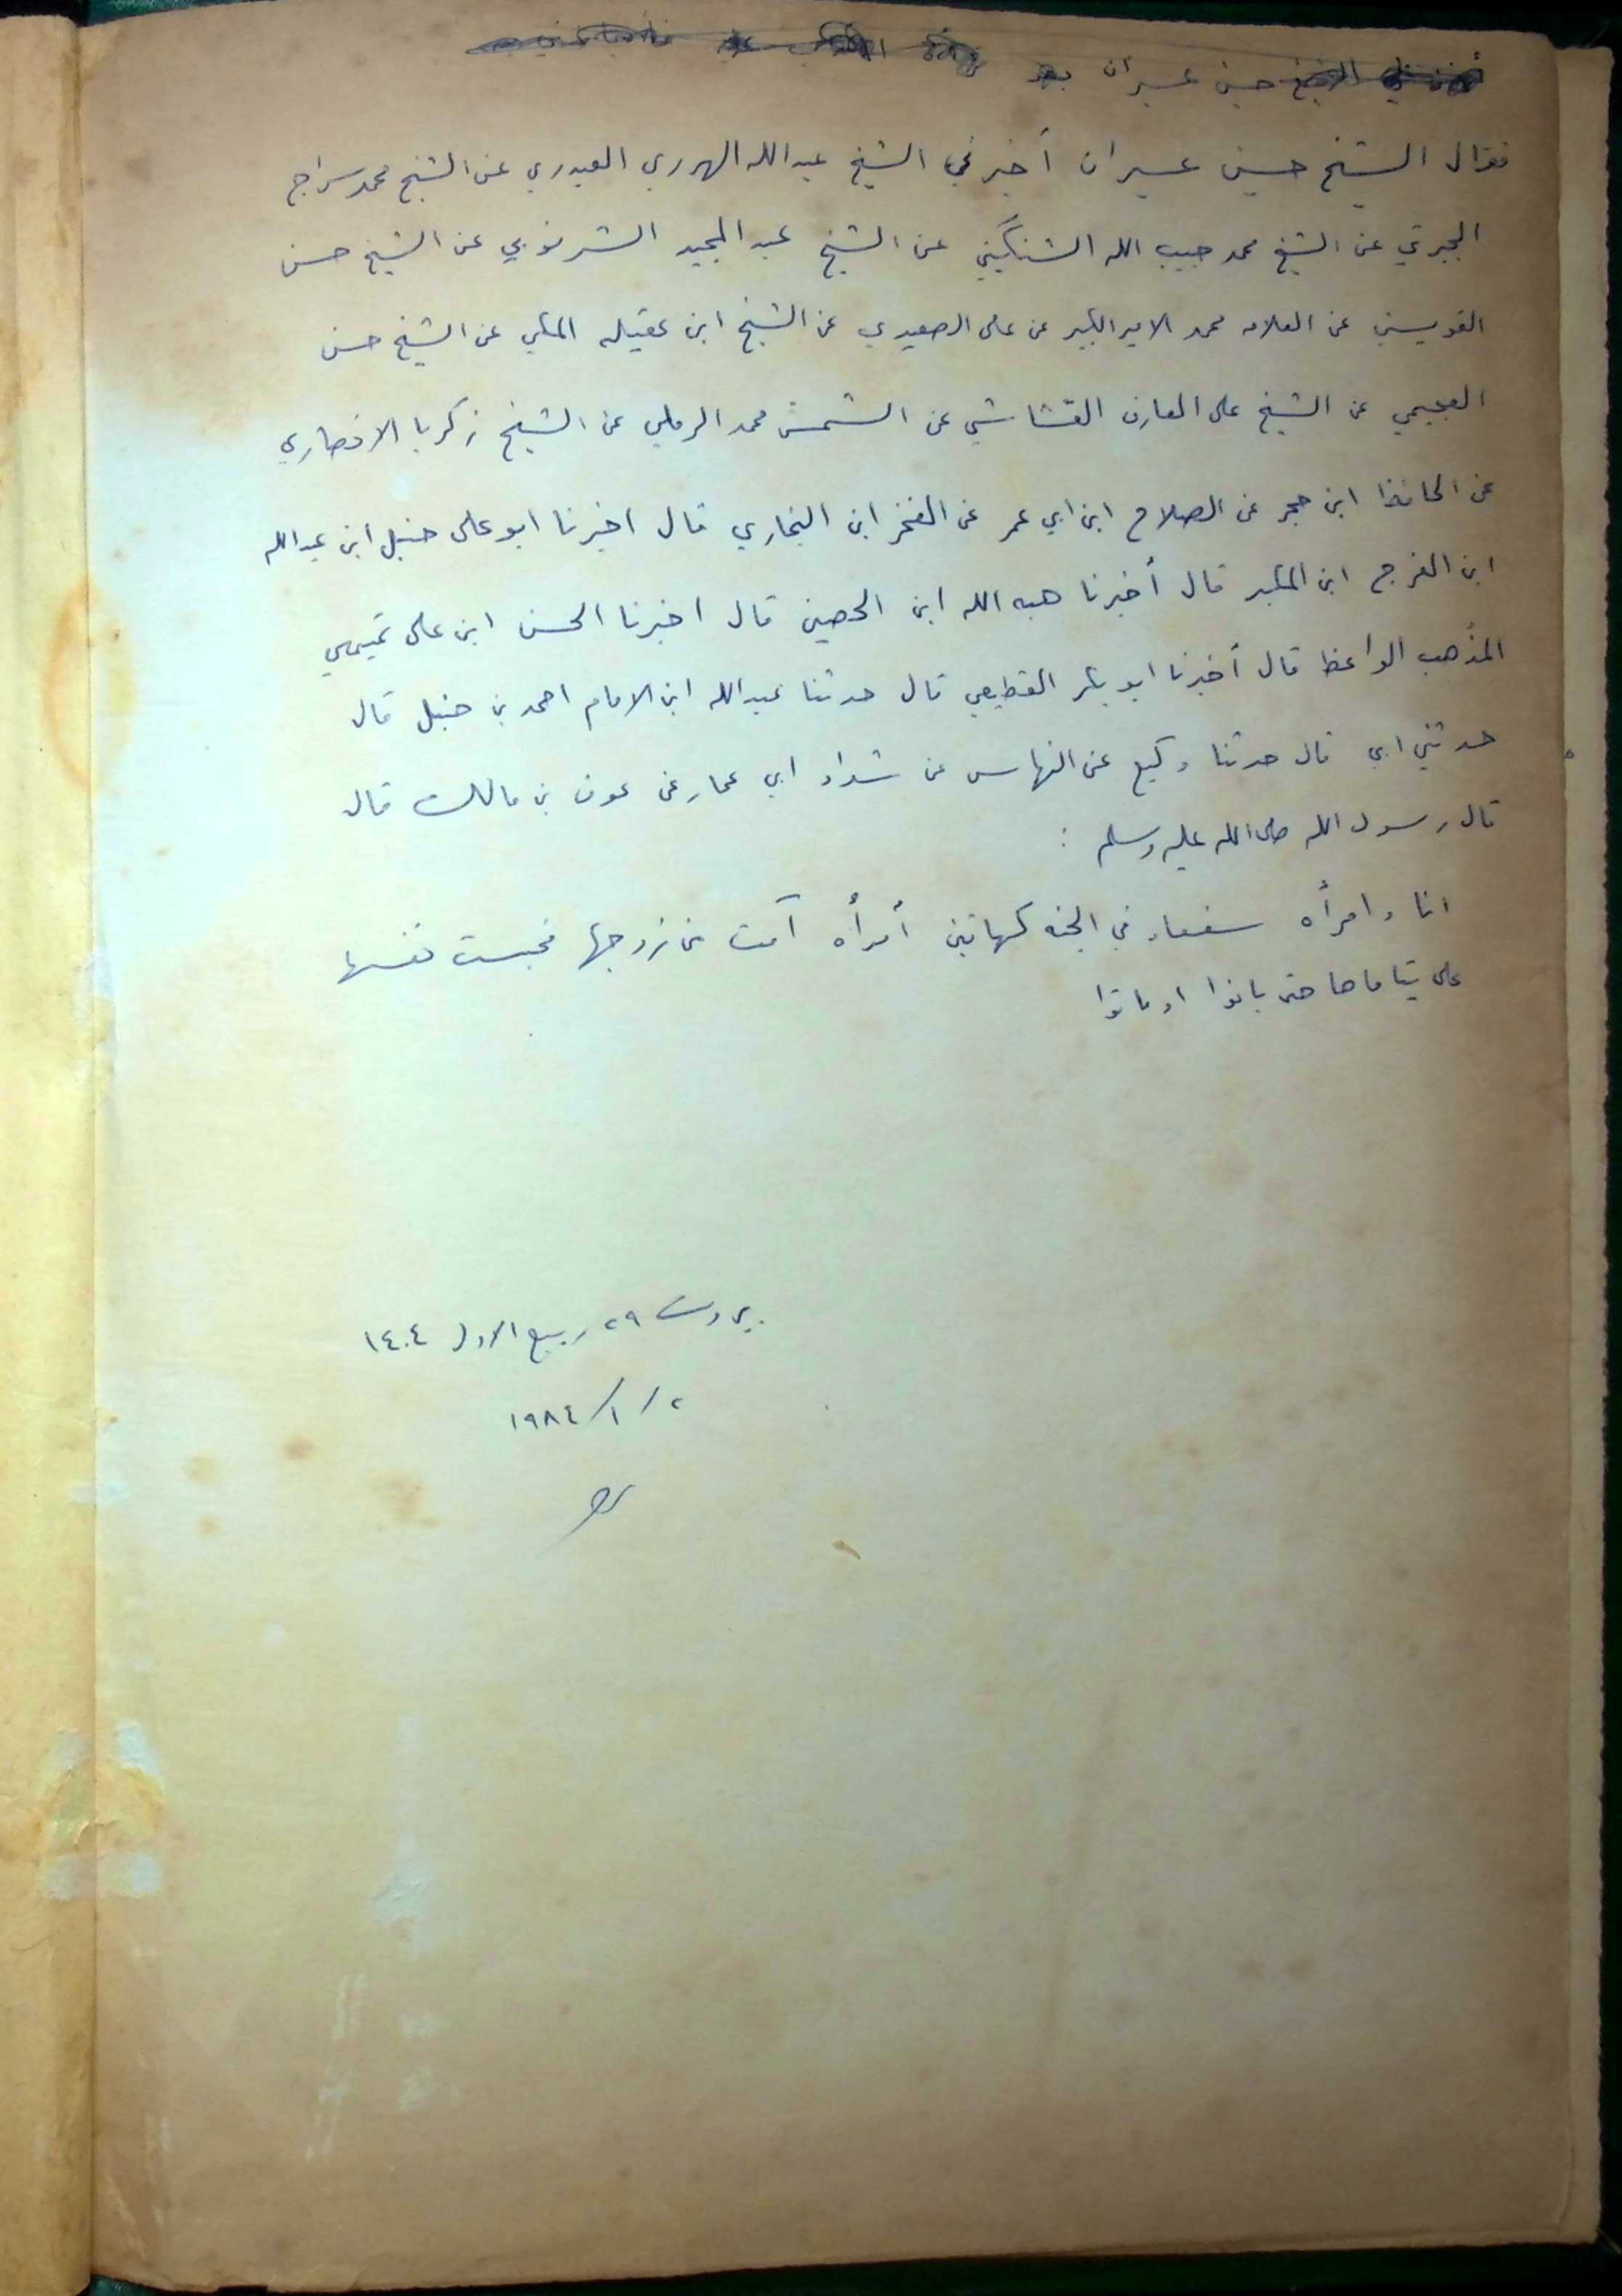 الشيخ حسين عسيران بعد
فقال الشيخ حسين عسيران أخبرني الشيخ عبدالله الهرري العبدري عن الشيخ محمد سراج
الجبرتي عن الشيخ محمد حبيب الله الشنكيتي عن الشيخ عبد المجيد الشرنوبي عن الشيخ حسن
القويسني عن العلامه محمد الامير الكبير عن علي الصعيدي عن الشيخ ابن عقيله المكي عن الشيخ حسن
العجيمي عن الشيخ على العارف القشاشي عن الشمس محمد الرملي عن الشيخ زكريا الانصاري
عن الحافظ ابن حجر عن الصلاح ابن ابي عمر عن الفخر ابن البخاري قال اخبرنا ابو على حنبل ابن عبدالله
ابن الفرج ابن المكبر قال أخبرنا هبه الله ابن الحصين قال اخبرنا الحسن ابن على تميمي
المذهب الواعظ قال أخبرنا ابو بكر القطيعي قال حدثنا عبدالله ابن الامام احمد بن حنبل قال
حدثني ابي قال حدثنا وكيع عن النهاس عن شداد ابي عمار عن عوف بن مالك قال
قال رسول الله صلى الله عليه وسلم :
انا وامرأه سفعاء في الجنه كهاتين أمرأه آمت من زوجها فحبست نفسها
على يتاماها حتى بانوا او ماتوا
بيروت ٢٩ ربيع الاول ١٤٠٤
٢ / ١ / ١٩٨٤